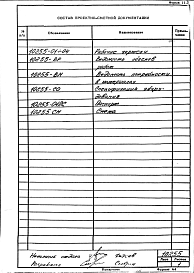 Форма 11.2
СОСТАВ ПРОЕКТНО-СМЕТНОЙ ДОКУМЕНТАЦИИ
№ п/п
Обозначение
Наименование
Приме-чание
10255-01-04 Рабочие чертежи
10255-ВР Ведомость объемов работ
10255-ВМ Ведомость потребности в материалах
10255-СО Спецификация оборудования
Паспорт
10255 СМ Смета
Начальник отдела
Разработал
10255
Лист
Формат А4